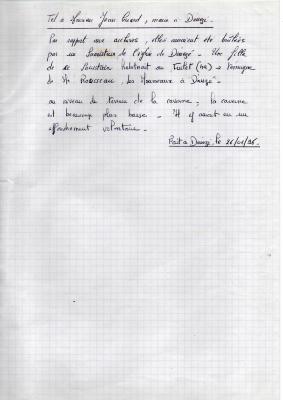 Tel à Monsieur Jean Guard, maire à Dangé.
Par rapport aux archives, elles auraient été brûlées
par le Sacristain de l'église de Dangé. Une fille
de ce Sacristain habitant au (46) à
de Mr Rousseau, les Hormeaux à Dangé.
au niveau du terrain de la caverne, la caverne
est beaucoup plus basse. Il y aurait eu un
effondrement volontaire.
Fait à Dangé, le 26/01/96.